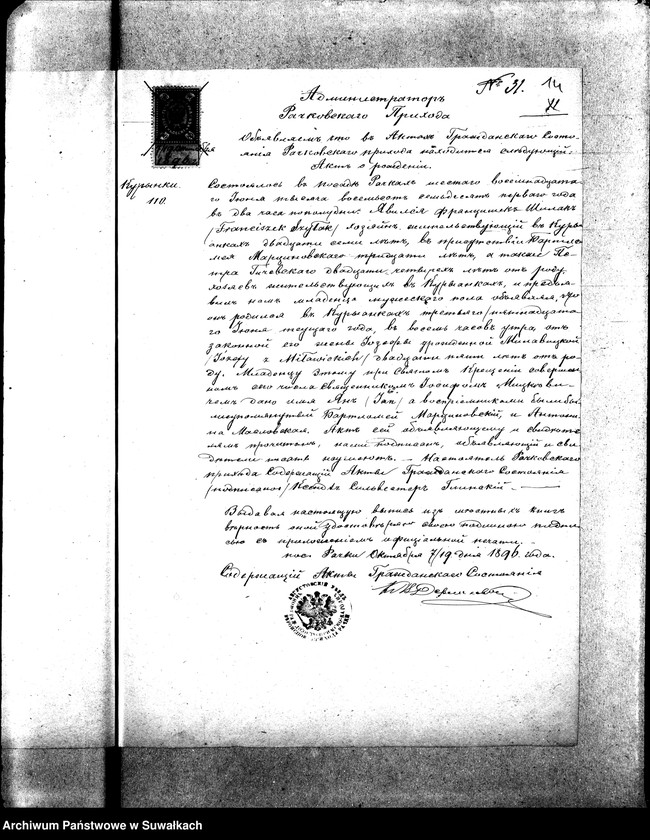 № 31. 14
XI
Администраторъ
Рачковскаго Прихода
Объявляемъ что въ Актахъ Гражданскаго Состо-
янія Рачковскаго прихода находится слѣдующій:
Актъ о рожденіи.
Курьянки.
110.
Состоялось въ посадѣ Рачкахъ шестаго восемнадцата-
го Іюня тысяча восемьсотъ семьдесятъ перваго года
въ два часа пополудни. Явился Францишекъ
/Franciszek хозяинъ, жительствующій въ Курьян-
нкахъ двадцати семи лѣтъ, въ присутствіи Бартло-
мея Марциновскаго тридцати лѣтъ, а также Пе-
тра двадцати четырехъ лѣтъ отъ роду,
хозяевъ жительствующихъ въ Курьянкахъ, и предъя-
вилъ намъ младенца мужескаго пола объявляя, что
онъ родился въ Курьянкахъ третьяго /пятнадцата-
го Іюня текущаго года, въ восемь часовъ утра, отъ
законной его жены Іозефы урожденной
двадцати пяти лѣтъ отъ ро-
ду. Младенцу этому при Святомъ Крещеніи совершен-
номъ сего числа священникомъ Іосифомъ
чемъ дано имя Янъ /Jan/ а воспріемниками были вы-
шеупомянутый Бартломей Марциновскій, и Антони-
на Масловская. Актъ сей объявляющему и свидѣте-
лямъ прочитанъ, нами подписанъ, объявляющій и сви-
дѣтели писать неумѣютъ. — Настоятель Рачковскаго
прихода Содержащій Акты Гражданскаго Состоянія
/подписано/ Ксендзъ Сильвестеръ
Выдавая настоящую выпись изъ книгъ
вѣрность оной удостовѣряю своею подпи-
сью съ приложеніемъ оффиціальной печати.
пос. Рачки Октября 7/19 дня 1890 года.
Содержащій Акты Гражданскаго Состоянія
Archiwum Państwowe w Suwałkach